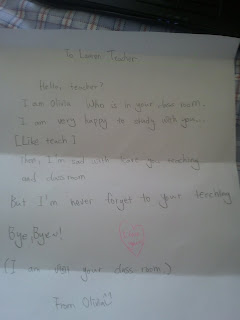 To Lauren Teacher.
Hello, teacher!
I am Olivia Who is in your class room.
I am very happy to study with you...
[Like teach]
Then, I'm sad with teaching
and classroom
But I'm never forget to your teaching
Bye, Bye~!
(I am your class room.)
From Olivia^^